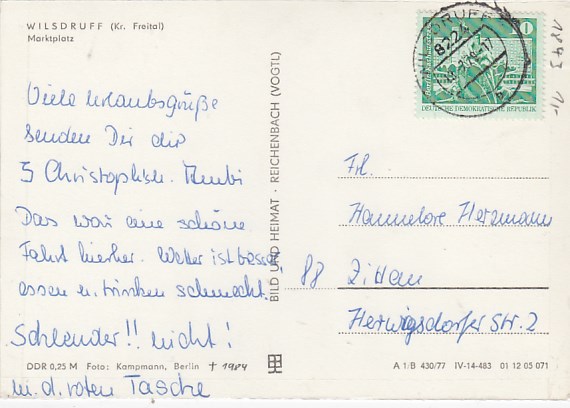 WILSDRUFF (Kr. Freital)
Marktplatz
Viele Urlaubsgrüße
senden Dir die
5 Christophsh.
Das war eine schöne
Fahrt hierher. Wetter ist besser,
essen u. trinken schmeckt.
Schlender!! nicht!
m. d. roten Tasche
DDR 0,25 M Foto: Kampmann, Berlin † 1984
BILD UND HEIMAT · REICHENBACH (VOGTL)
10
DEUTSCHE DEMOKRATISCHE REPUBLIK
8224
1843
1,-
Frl.
Hannelore Herzmann
88 Zittau
Herwigsdorfer Str. 2
A 1/B 430/77 IV-14-483 01 12 05 071